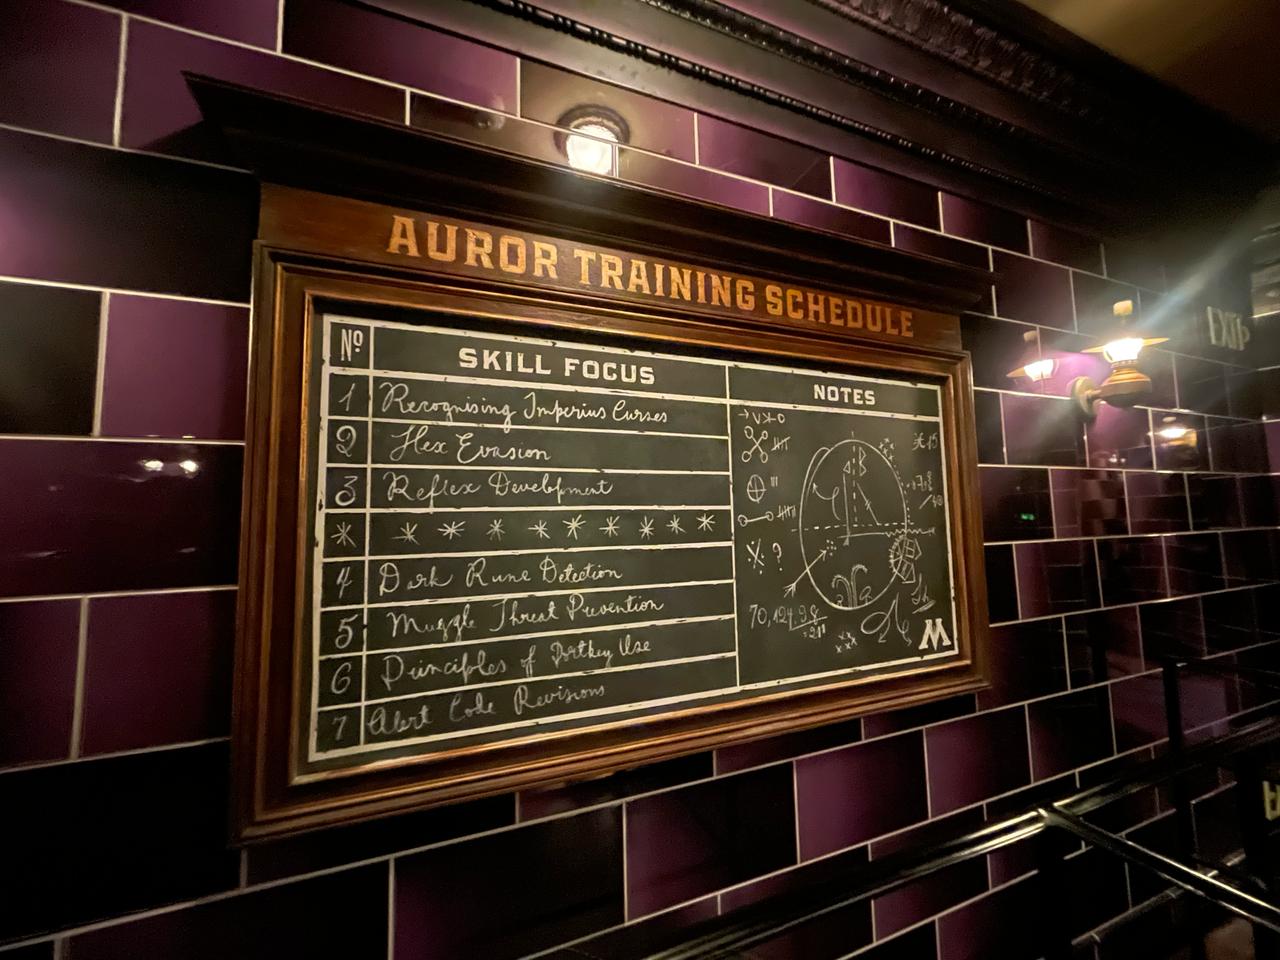 AUROR TRAINING SCHEDULE
Nº SKILL FOCUS NOTES
1 Recognising Imperius Curses
2 Hex Evasion
3 Reflex Development
4 Dark Rune Detection
5 Muggle Threat Prevention
6 Principles of Portkey Use
7 Alert Code Revisions
?
M
EXIT